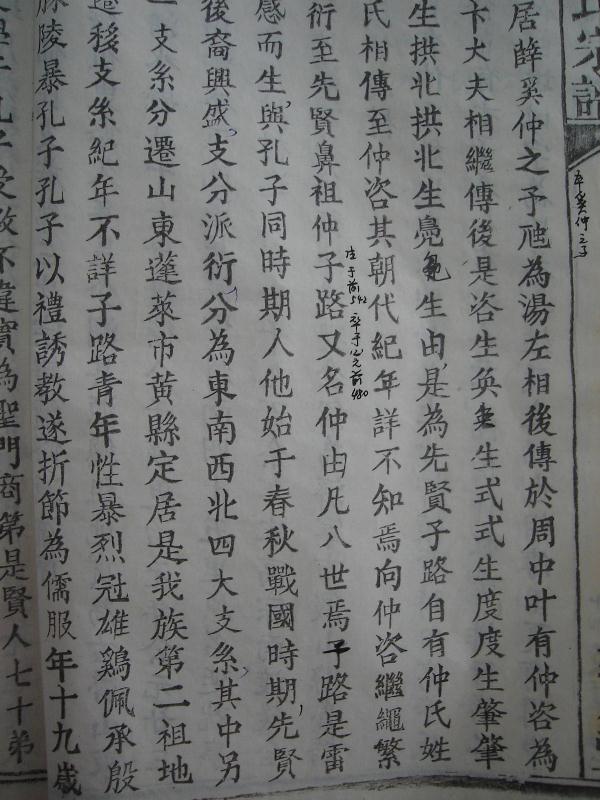 氏宗譜
卒奚仲之子
居薛奚仲之予虺為湯左相後傳於周中叶有仲咨為
卞大夫相繼傳後是咨生奂奂生式式生度度生肇肇
生拱北拱北生鳧鳧生由是為先賢子路自有仲氏姓
氏相傳至仲咨其朝代紀年詳不知焉向仲咨繼繩繁
衍至先賢鼻祖仲子路又名仲由凡八世焉子路是雷
生于前542卒于公元前480
感而生與孔子同時期人他始于春秋戰國時期先賢
後裔興盛支分派衍分為東南西北四大支系其中另
一支系分遷山東蓬萊市黃縣定居是我族第二祖地
遷移支系紀年不詳子路青年性暴烈冠雄鷄佩承殷
陵暴孔子孔子以禮誘教遂折節為儒服年十九歲
孔子受教不違實為聖門商第是賢人七十弟